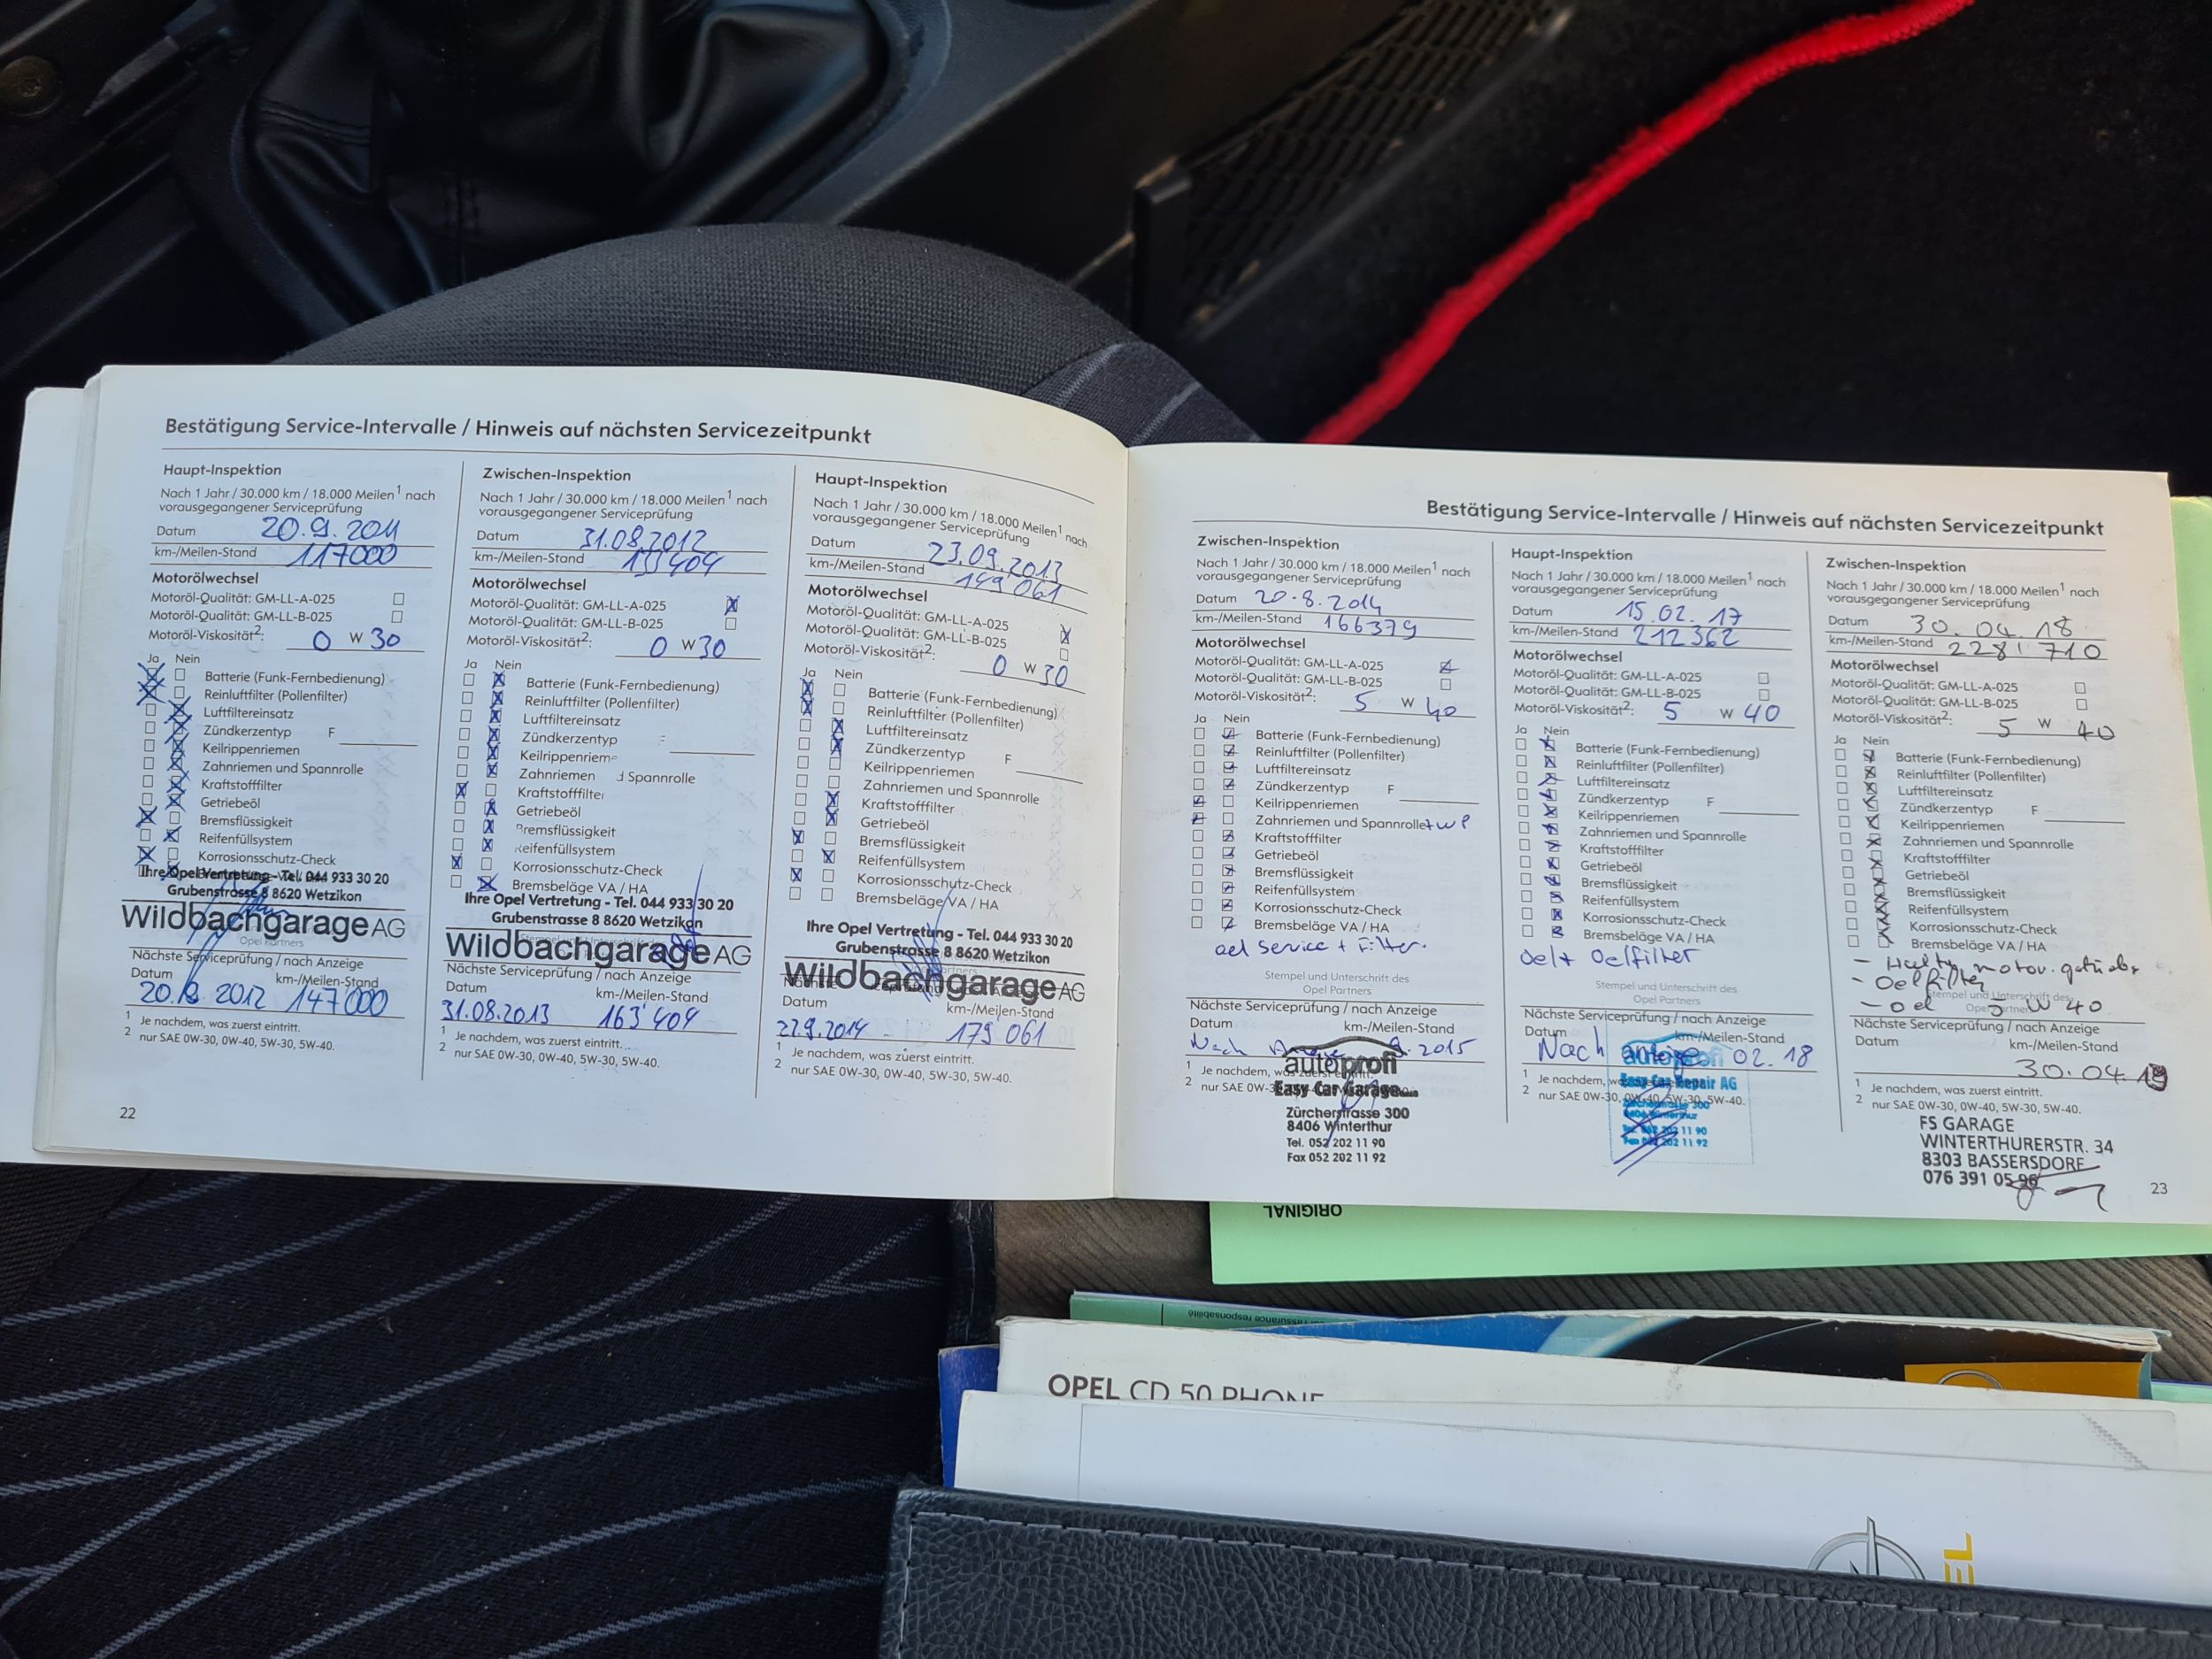 Bestätigung Service-Intervalle / Hinweis auf nächsten Servicezeitpunkt
Haupt-Inspektion
Nach 1 Jahr / 30.000 km / 18.000 Meilen1 nach
vorausgegangener Serviceprüfung
Datum 20.9.2011
km-/Meilen-Stand 117000
Motorölwechsel
Motoröl-Qualität: GM-LL-A-025
Motoröl-Qualität: GM-LL-B-025
Motoröl-Viskosität2: 0 W 30
Ja Nein
Batterie (Funk-Fernbedienung)
Reinluftfilter (Pollenfilter)
Luftfiltereinsatz
Zündkerzentyp F
Keilrippenriemen
Zahnriemen und Spannrolle
Kraftstofffilter
Getriebeöl
Bremsflüssigkeit
Reifenfüllsystem
Korrosionsschutz-Check
Ihre Opel Vertretung - Tel. 044 933 30 20
Grubenstrasse 8 8620 Wetzikon
Wildbachgarage AG
Opel Partners
Nächste Serviceprüfung / nach Anzeige
Datum km-/Meilen-Stand
2012 147000
1 Je nachdem, was zuerst eintritt.
2 nur SAE 0W-30, 0W-40, 5W-30, 5W-40.
22
Zwischen-Inspektion
Nach 1 Jahr / 30.000 km / 18.000 Meilen1 nach
vorausgegangener Serviceprüfung
Datum 31.08.2012
km-/Meilen-Stand
Motorölwechsel
Motoröl-Qualität: GM-LL-A-025
Motoröl-Qualität: GM-LL-B-025
Motoröl-Viskosität2: 0 W 30
Ja Nein
Batterie (Funk-Fernbedienung)
Reinluftfilter (Pollenfilter)
Luftfiltereinsatz
Zündkerzentyp
Keilrippenrieme
Zahnriemen d Spannrolle
Kraftstofffilter
Getriebeöl
Bremsflüssigkeit
Reifenfüllsystem
Korrosionsschutz-Check
Bremsbeläge VA / HA
Ihre Opel Vertretung - Tel. 044 933 30 20
Grubenstrasse 8 8620 Wetzikon
Wildbachgarage AG
Nächste Serviceprüfung / nach Anzeige
Datum km-/Meilen-Stand
31.08.2013 163'404
1 Je nachdem, was zuerst eintritt.
2 nur SAE 0W-30, 0W-40, 5W-30, 5W-40.
Haupt-Inspektion
Nach 1 Jahr / 30.000 km / 18.000 Meilen1 nach
vorausgegangener Serviceprüfung
Datum 23.09.2013
km-/Meilen-Stand 149 061
Motorölwechsel
Motoröl-Qualität: GM-LL-A-025
Motoröl-Qualität: GM-LL-B-025
Motoröl-Viskosität2: 0 W 30
Ja Nein
Batterie (Funk-Fernbedienung)
Reinluftfilter (Pollenfilter)
Luftfiltereinsatz
Zündkerzentyp F
Keilrippenriemen
Zahnriemen und Spannrolle
Kraftstofffilter
Getriebeöl
Bremsflüssigkeit
Reifenfüllsystem
Korrosionsschutz-Check
Bremsbeläge VA / HA
Ihre Opel Vertretung - Tel. 044 933 30 20
Grubenstrasse 8 8620 Wetzikon
Wildbachgarage AG
Datum km-/Meilen-Stand
22.9.2014 179 061
1 Je nachdem, was zuerst eintritt.
2 nur SAE 0W-30, 0W-40, 5W-30, 5W-40.
Bestätigung Service-Intervalle / Hinweis auf nächsten Servicezeitpunkt
Zwischen-Inspektion
Nach 1 Jahr / 30.000 km / 18.000 Meilen1 nach
vorausgegangener Serviceprüfung
Datum 20.8.2014
km-/Meilen-Stand 166379
Motorölwechsel
Motoröl-Qualität: GM-LL-A-025
Motoröl-Qualität: GM-LL-B-025
Motoröl-Viskosität2: 5 W 40
Ja Nein
Batterie (Funk-Fernbedienung)
Reinluftfilter (Pollenfilter)
Luftfiltereinsatz
Zündkerzentyp F
Keilrippenriemen
Zahnriemen und Spannrolle + WP
Kraftstofffilter
Getriebeöl
Bremsflüssigkeit
Reifenfüllsystem
Korrosionsschutz-Check
Bremsbeläge VA / HA
oel service + Filter.
Stempel und Unterschrift des
Opel Partners
Nächste Serviceprüfung / nach Anzeige
Datum km-/Meilen-Stand
Nach 2015
autoprofi
1 Je nachdem, was zuerst eintritt.
Easy Car Garage
Zürcherstrasse 300
8406 Winterthur
Tel. 052 202 11 90
Fax 052 202 11 92
Haupt-Inspektion
Nach 1 Jahr / 30.000 km / 18.000 Meilen1 nach
vorausgegangener Serviceprüfung
Datum 15.02.17
km-/Meilen-Stand 212362
Motorölwechsel
Motoröl-Qualität: GM-LL-A-025
Motoröl-Qualität: GM-LL-B-025
Motoröl-Viskosität2: 5 W 40
Ja Nein
Batterie (Funk-Fernbedienung)
Reinluftfilter (Pollenfilter)
Luftfiltereinsatz
Zündkerzentyp F
Keilrippenriemen
Zahnriemen und Spannrolle
Kraftstofffilter
Getriebeöl
Bremsflüssigkeit
Reifenfüllsystem
Korrosionsschutz-Check
Bremsbeläge VA / HA
Oel + Oelfilter
Stempel und Unterschrift des
Opel Partners
Nächste Serviceprüfung / nach Anzeige
Datum km-/Meilen-Stand
Nach 02.18
autoprofi
1 Je nachdem,
Easy Car Repair AG
2 nur SAE 0W-30, 0W-40, 5W-30, 5W-40.
Zürcherstrasse 300
8406 Winterthur
Tel. 052 202 11 90
Fax 052 202 11 92
Zwischen-Inspektion
Nach 1 Jahr / 30.000 km / 18.000 Meilen1 nach
vorausgegangener Serviceprüfung
Datum 30.04.18
km-/Meilen-Stand 228'710
Motorölwechsel
Motoröl-Qualität: GM-LL-A-025
Motoröl-Qualität: GM-LL-B-025
Motoröl-Viskosität2: 5 W 40
Ja Nein
Batterie (Funk-Fernbedienung)
Reinluftfilter (Pollenfilter)
Luftfiltereinsatz
Zündkerzentyp F
Keilrippenriemen
Zahnriemen und Spannrolle
Kraftstofffilter
Getriebeöl
Bremsflüssigkeit
Reifenfüllsystem
Korrosionsschutz-Check
Bremsbeläge VA / HA
- motor.
- Oelfilter
- oel 5 W 40
Nächste Serviceprüfung / nach Anzeige
Datum km-/Meilen-Stand
30.04.19
1 Je nachdem, was zuerst eintritt.
2 nur SAE 0W-30, 0W-40, 5W-30, 5W-40.
FS GARAGE
WINTERTHURERSTR. 34
8303 BASSERSDORF
076 391 05 96
23
ORIGINAL
OPEL CD 50 PHONE